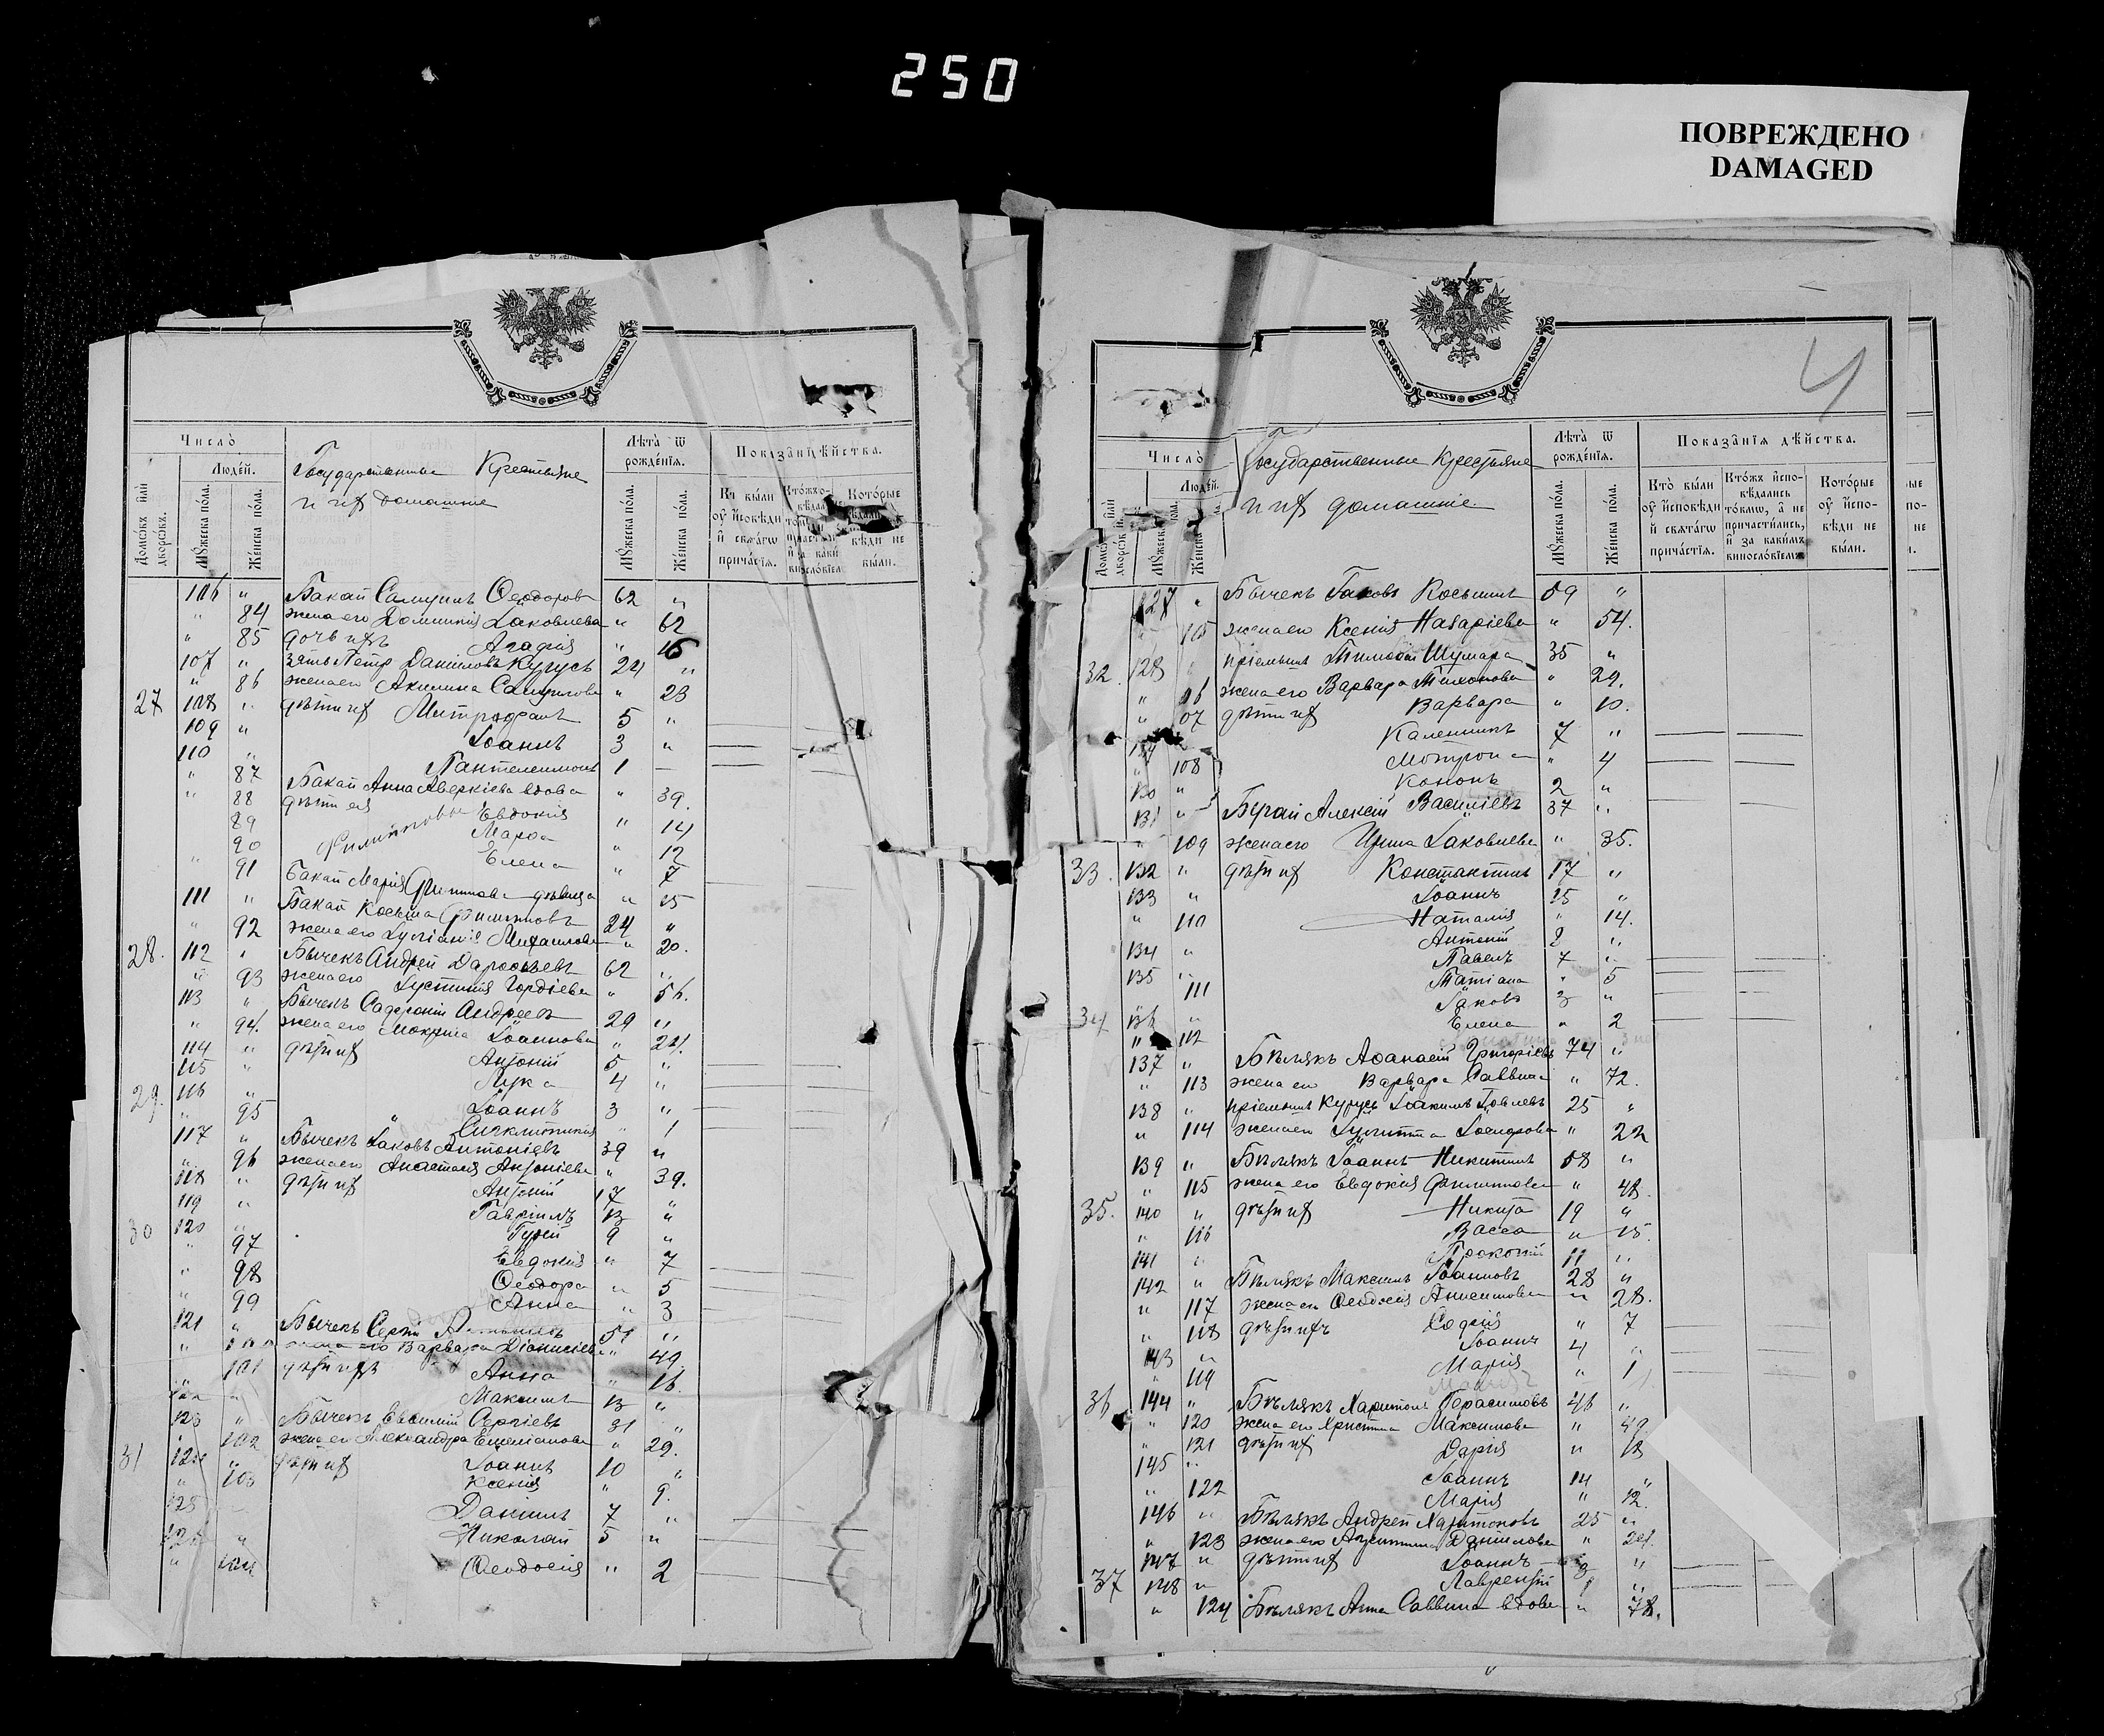 250
ПОВРЕЖДЕНО
DAMAGED
Число̀
Люде́й.
Домѡ́въ и҆лѝ дворѡ́въ.
Мꙋ́жеска по́ла.
Же́нска по́ла.
Государственные Крестьяне
и ихъ домашніе
Лѣта̀ ѿ рожде́нїѧ.
Мꙋ́жеска по́ла.
Же́нска по́ла.
106 " Бакай Самуилъ Ѳеодоровъ 62 "
" 84 жена его Домникія Іаковлева " 62
" 85 дочь ихъ Агафія " 16
107 " зять Петр Даніиловъ Курусь 24 "
" 86 жена его Акилина Самуилова " 23
27 108 " дѣти ихъ Митрофанъ 5 "
109 " Іоаннъ 3 "
110 " Пантелеимонъ 1 —
" 87 Бакай Анна Аверкіева вдова " 39.
" 88 дѣти ея Евдокія " 14
89 Филипповы Марѳа " 12
90 Елена " 7
" 91 Бакай Марія Филиппова дѣвица " 25
111 " Бакай Косьма Филипповъ 24 "
" 92 жена его Іуліанія Михаилова " 20.
28. 112 " Бычекъ Андрей 62 "
" 93 жена его Іустинія Гордіева " 56.
113 " Бычекъ Андреевъ 29 "
" 94. жена его Іоаннова " 24.
114 " дѣти ихъ Антоній 5 "
115 " Лука 4 "
29. 116 " Іоаннъ 3 "
" 95 Сигклитикія " 1
117 " Бычекъ Іаковъ Антоніевъ 39 "
" 96 жена его Анастасія Антоніева " 39.
118 " дѣти ихъ Антоній 17 "
119 " Гавріилъ 13 "
30 120 " Гурій 9 "
" 97 Евдокія " 7
" 98 Ѳеодора " 5
" 99 Анна " 3
121 " Бычекъ Сергій 51 "
" жена его Варвара Діонисіева " 49.
" 101 дѣти ихъ Анна " 16.
" Максимъ 13 "
123 " Бычекъ Евѳимій Сергіевъ 31 "
" 102 жена его Александра Емеліанова " 29.
31 124 " дѣти ихъ Іоаннъ 10 "
" 103 Ксенія " 9.
125 — Даніилъ 7 "
126 " Николай 5 "
" 104 Ѳеодосія " 2
4
Число̀
Люде́й.
Государственные Крестьяне
и ихъ домашніе.
Лѣта̀ ѿ рожде́нїѧ.
Мꙋ́жеска по́ла.
Же́нска по́ла.
Показа̑нїѧ дѣ́йства.
Кто̀ бы́ли ᲂу҆ и҆сповѣ́ди и҆ свѧта́гѡ прича́стїѧ.
Кто́жъ и҆спо-вѣ́дались то́кмѡ, а҆ не причасти́лись, и҆ за каки́мъ винослові́емъ.
Кото́рые ᲂу҆ и҆спо-вѣ́ди не бы́ли.
127 " Бычекъ Іаковъ Косьминъ 59 "
" 105 жена его Ксенія Назаріева " 54.
32. 128 " пріемышъ Тимоѳей Шумара 35 "
" 06 жена его Варвара Тихонова " 29.
" 07 дѣти ихъ Варвара " 10.
Калинникъ 7 "
" 108 Мотрона " 4
130 " Кононъ 2 "
131 " Бугай Алексій Василіевъ 37 "
" 109 жена его Ирина Іаковлева " 35.
33. 132 " дѣти ихъ Константинъ 17 "
133 " Іоаннъ 15 "
" 110 Наталія " 14.
134 " Антоній 8 "
135 " Павелъ 7 "
111 Татіана " 5
34 136 " Іаковъ 3 "
" 112 Елена " 2
137 " Бѣлякъ Аѳанасій Григоріевъ 74 "
" 113 жена его Варвара Саввина " 72.
138 " пріемышъ Курусь Іоакимъ Іовлевъ 25 "
" 114 жена его Іулитта " 22
139 " Бѣлякъ Іоаннъ Никитинъ 58 "
" 115 жена его Евдокія Филиппова " 48.
35. 140 " дѣти ихъ Никита 19 "
" 116 Васса " 15.
141 " Прокопій 11 "
142 " Бѣлякъ Максимъ Іоанновъ 28 "
" 117 жена его Ѳеодосія Анисимова " 28.
" 118 дѣти ихъ Софія " 7
143 " Іоаннъ 4 "
" 119 Марія " 1
36 144 " Бѣлякъ Харитонъ Герасимовъ 46 "
" 120 жена его Христина Максимова " 49.
" 121 дѣти ихъ Дарія " 18
145 " Іоаннъ 14 "
" 122 Марія " 12.
146 " Бѣлякъ Андрей Харитоновъ 25 "
" 123 жена его Даніилова " 24.
147 " дѣти ихъ Іоаннъ 3 "
37 148 " Лаврентій 1 "
" 124 Бѣлякъ Анна Саввина вдова " 78.